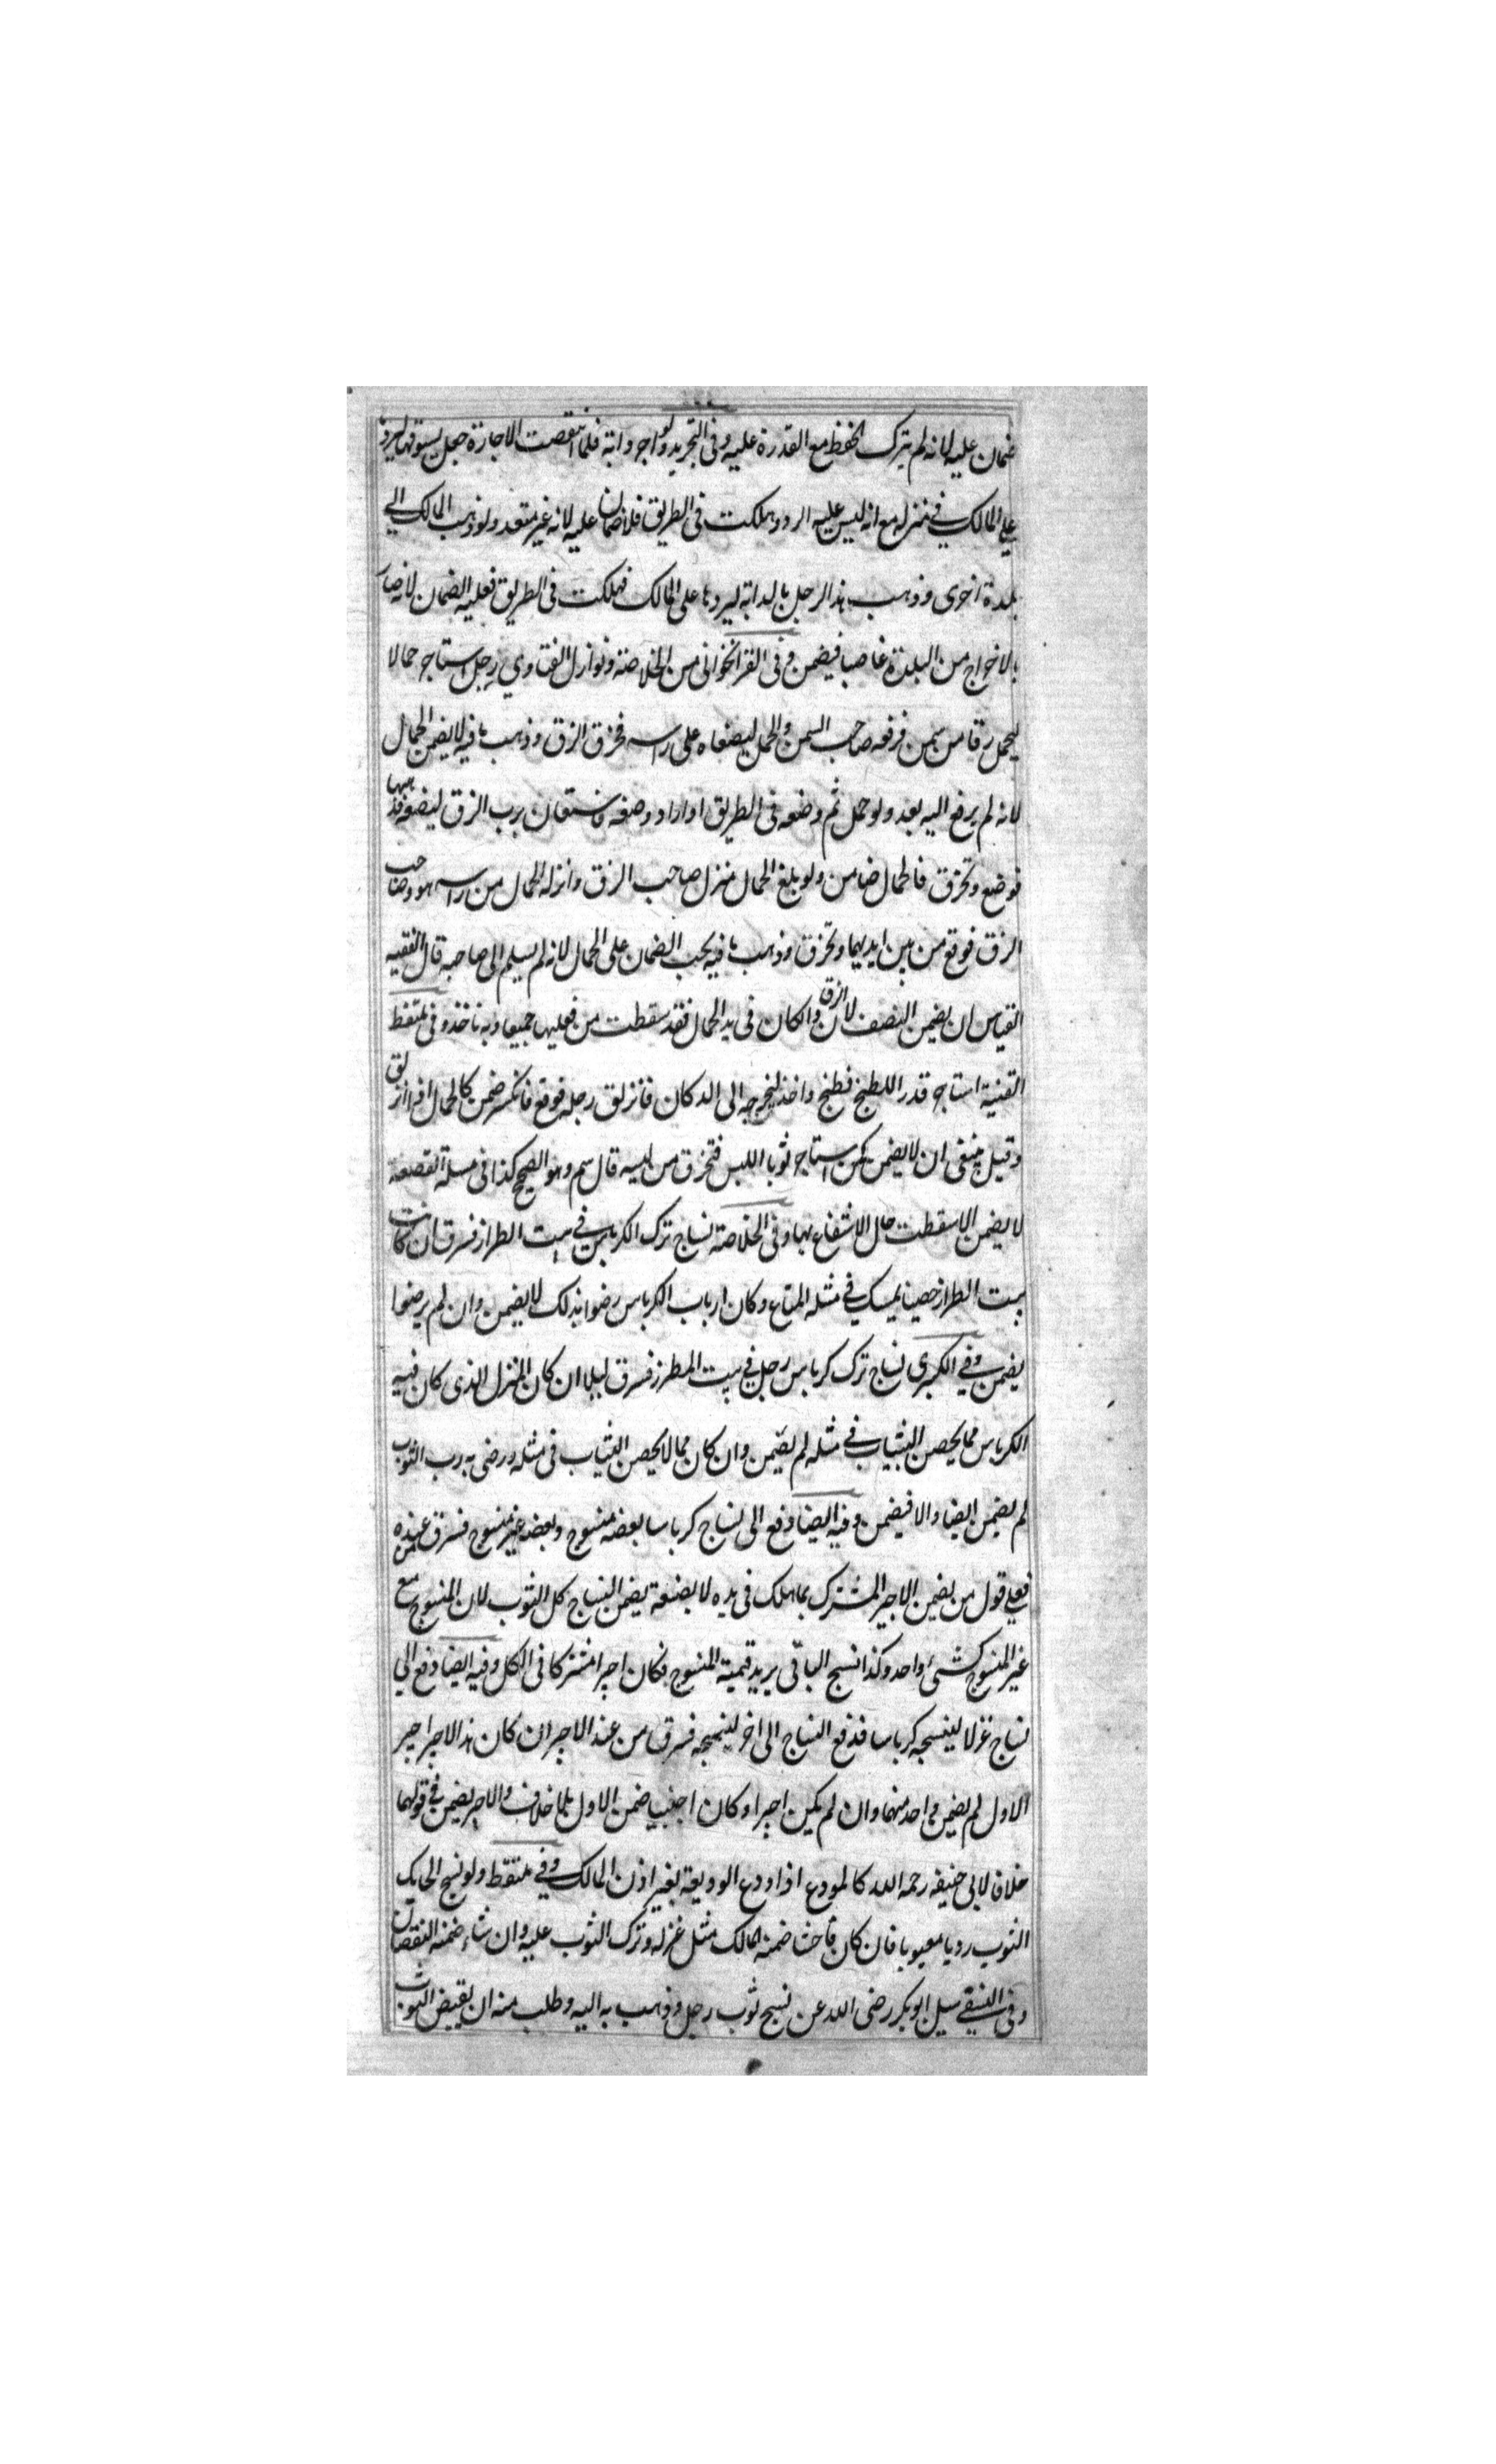 ضمان عليه لانه لم يترك الحفظ مع القدرة عليه وفى التجريد ولو اجر دابة فلما انتقصت الاجارة جعل يسوقها ليردها
على المالك فى منزله مع انه ليس عليه الرد وهلكت فى الطريق فلا ضمان عليه لانه غير متعد ولو ذهب المالك الى
بلدة اخرى وذهب هذا الرجل بالدابة ليردها على المالك فهلكت فى الطريق فعليه الضمان لانه صار
بالاخراج من البلدة غاصبا فيضمن وفى القراخوانى من الخلاصة ونوازل الفتاوى رجل استاجر حمالا
ليحمل زقا من سمن فرفعه صاحب السمن والحمال ليضعاه على راسه فخرق الزق وذهب ما فيه لا يضمن الحمال
لانه لم يرفع اليه بعد ولو حمل ثم وضعه فى الطريق او اراد وضعه فاستعان برب الزق ليضعه
فوضع وتخرق فالحمال ضامن ولو بلغ الحمال منزل صاحب الزق وانزله الحمال من راسه هو وصاحب
الزق فوقع من بين ايديهما وتخرق وذهب ما فيه يجب الضمان على الحمال لانه لم يسلم الى صاحبه قال الفقيه
القياس ان يضمن النصف لان الزق وان كان فى يد الحمال فقد سقطت من فعليهما جميعا وبه ناخذ وفى ملتقط
القنية استاجر قدرا للطبخ فطبخ واخذ ليخرجه الى الدكان فانزلق رجله فوقع فانكسر ضمن كالحمال اذا انزلق
وقيل ينبغى ان لا يضمن كمن استاجر ثوبا اللبس فتخرق من لبسه قال سم وهو الصحيح كذا فى مسلة القصعة
لا يضمن الا سقطت حال الانتفاع بها وفى الخلاصة نساج ترك الكرباس فى بيت الطراز فسرق ان كانت
بيت الطراز حصينا يمسك فى مثله المتاع وكان ارباب الكرباس رضوا بذلك لا يضمن وان لم يرضوا
يضمن وفى الكبرى نساج ترك كرباس رجل فى بيت المطرز فسرق ليلا ان كان المنزل الذى كان فيه
الكرباس مما يحصن الثياب فى مثله لم يضمن وان كان مما لا يحصن الثياب فى مثله ورضى به رب الثوب
لم يضمن ايضا والا فيضمن وفيه ايضا دفع الى نساج كرباسا بعضه منسوج وبعضه غير منسوج فسرق من عنده
فعلى قول من يضمن الاجير المشترك بما هلك فى يده لا بصنعة يضمن النساج كل الثوب لان المنسوج مع
غير المنسوج كشئ واحد وكذا نسج الباقى يزيد قيمة المنسوج فكان اجيرا مشتركا فى الكل وفيه ايضا دفع الى
نساج غزلا لينسجه كرباسا فدفع النساج الى اخر لينسجه فسرق من عند الاخر ان كان هذا الاخر اجير
الاول لم يضمن واحد منهما وان لم يكن اجيرا وكان اجنبيا ضمن الاول بلا خلاف والاخر يضمن فى قولهما
خلافا لابى حنيفه رحمه الله كالمودع اذا اودع الوديعة بغير اذن المالك وفى ملتقط ولو نسج الحايك
الثوب رديا معيوبا فان كان فاحشا ضمنه المالك مثل غزله وترك الثوب عليه وان شاء ضمنه النقصان
وفى سيل ابو بكر رضى الله عن نسج ثوب رجل وذهب به اليه وطلب منه ان يقبض الثوب